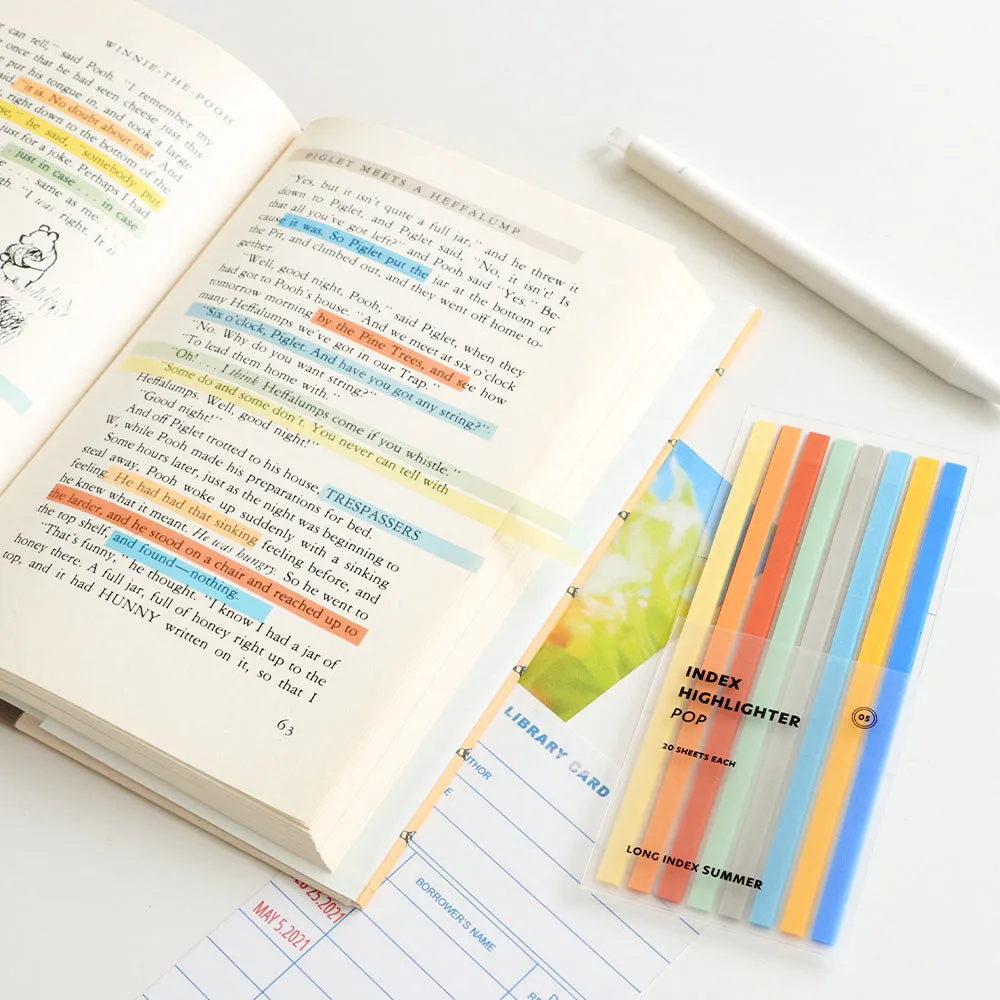 WINNIE-THE-POOH
can tell," said Pooh. "I remember my
once that he had seen cheese just this
put his tongue in, and took a large
said, "it is. No doubt about that. And
right down to the bottom of the
he said, "somebody put
just for a joke. Perhaps I had
just in case . . . in case
same as me.
"I was right. It is
PIGLET MEETS A HEFFALUMP
"Yes, but it isn't quite a full jar," and he threw it
down to Piglet, and Piglet said, "No, it isn't! Is
that all you've got left?" and Pooh said "Yes." Be-
cause it was. So Piglet put the jar at the bottom of
the Pit, and climbed out, and they went off home to-
gether.
"Well, good night, Pooh," said Piglet, when they
had got to Pooh's house. "And we meet at six o'clock
tomorrow morning by the Pine Trees, and see how
many Heffalumps we've got in our Trap."
"Six o'clock, Piglet. And have you got any string?"
"No. Why do you want string?"
"To lead them home with."
"Oh! . . . I think Heffalumps come if you whistle."
"Some do and some don't. You never can tell with
Heffalumps. Well, good night!"
"Good night!"
And off Piglet trotted to his house TRESPASSERS
W, while Pooh made his preparations for bed.
Some hours later, just as the night was beginning to
steal away, Pooh woke up suddenly with a sinking
feeling. He had had that sinking feeling before, and
he knew what it meant. He was hungry. So he went to
the larder, and he stood on a chair and reached up to
the top shelf, and found—nothing.
"That's funny," he thought. "I know I had a jar of
honey there. A full jar, full of honey right up to the
top, and it had HUNNY written on it, so that I
63
INDEX
HIGHLIGHTER
POP
05
20 SHEETS EACH
LONG INDEX SUMMER
LIBRARY CARD
BORROWER'S NAME
MAY 5,2021